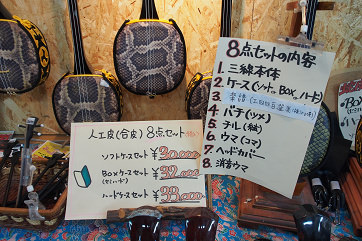 人工皮(合皮)8点セット
ソフトケースセット ¥30,000
Boxケースセット
(セミハード)
¥32,000
ハードケースセット ¥33,000
8点セットの内容
1. 三線本体
2. ケース(ソフト、Box、ハード)
3. 楽譜
4. バチ(ツメ)
5. チル(絃)
6. ウマ(コマ)
7. ヘッドカバー
8. 消音ウマ